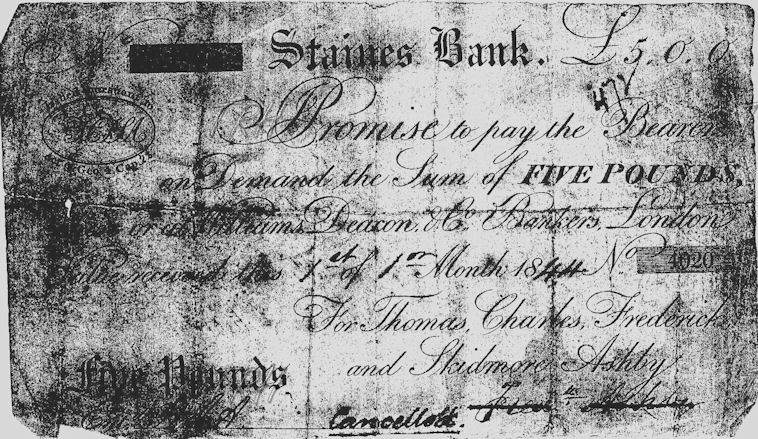 Staines Bank. £5.0.0
Promise to pay the Bearer
on Demand the Sum of FIVE POUNDS,
or at Williams, Deacon, & Co. Bankers, London
Value received this 1st of 1st Month 1844 No. 4020
For Thomas, Charles, Frederick
and Skidmore Ashby.
Five Pounds
Cancelled.